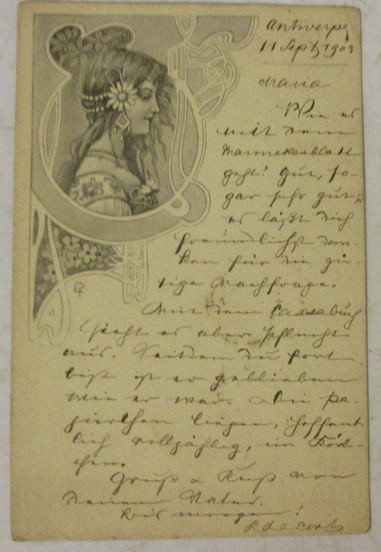 Antwerpen
11 Sept 1903
Maria
Wie es
mit dem
geht? Gut, so-
gar sehr gut;
es läßt dich
freundlichst dan-
ken für die gü-
tige Nachfrage.
Mit dem Cassabuch
sieht es aber schlecht
aus. Seitdem du fort
bist ist es geblieben
wie es war. Die Pa-
pierchen liegen, hoffent-
lich vollzählig, im Körb-
chen.
Gruß & Kuß von
deinem Vater.
Bis morgen!